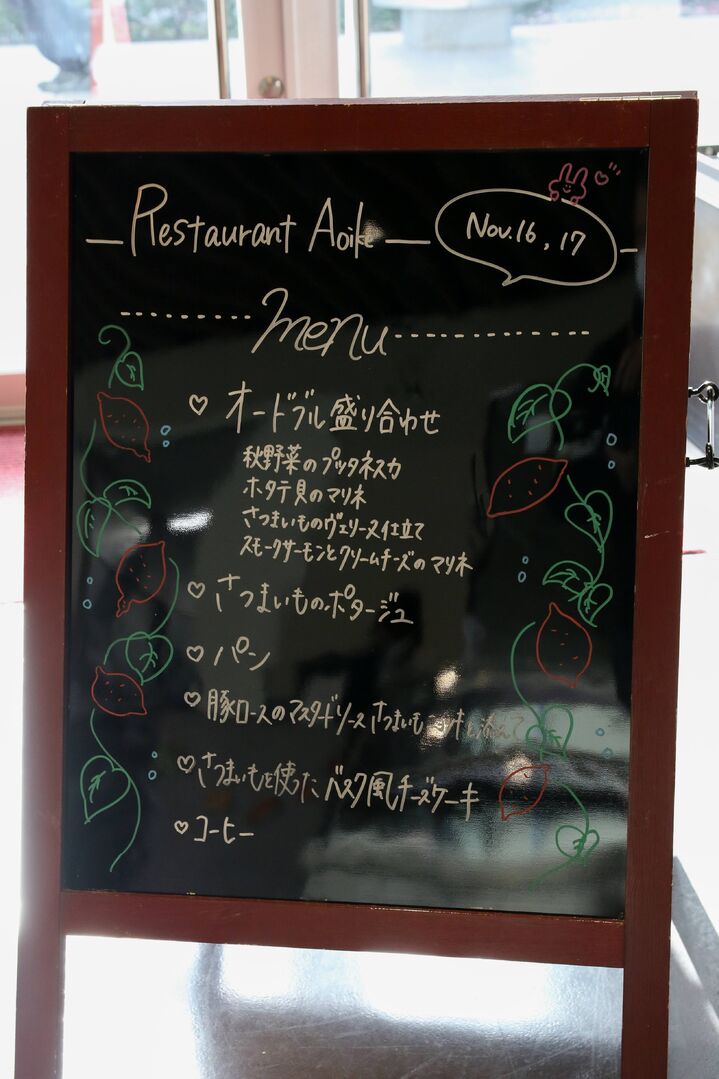 Restaurant Aoike
Nov.16, 17
menu
オードブル盛り合わせ
秋野菜のプッタネスカ
ホタテ貝のマリネ
さつまいものヴェリーヌ仕立て
スモークサーモンとクリームチーズのマリネ
さつまいものポタージュ
パン
豚ロースのマスタードソース さつまいも を添えて
さつまいもを使ったバスク風チーズケーキ
コーヒー